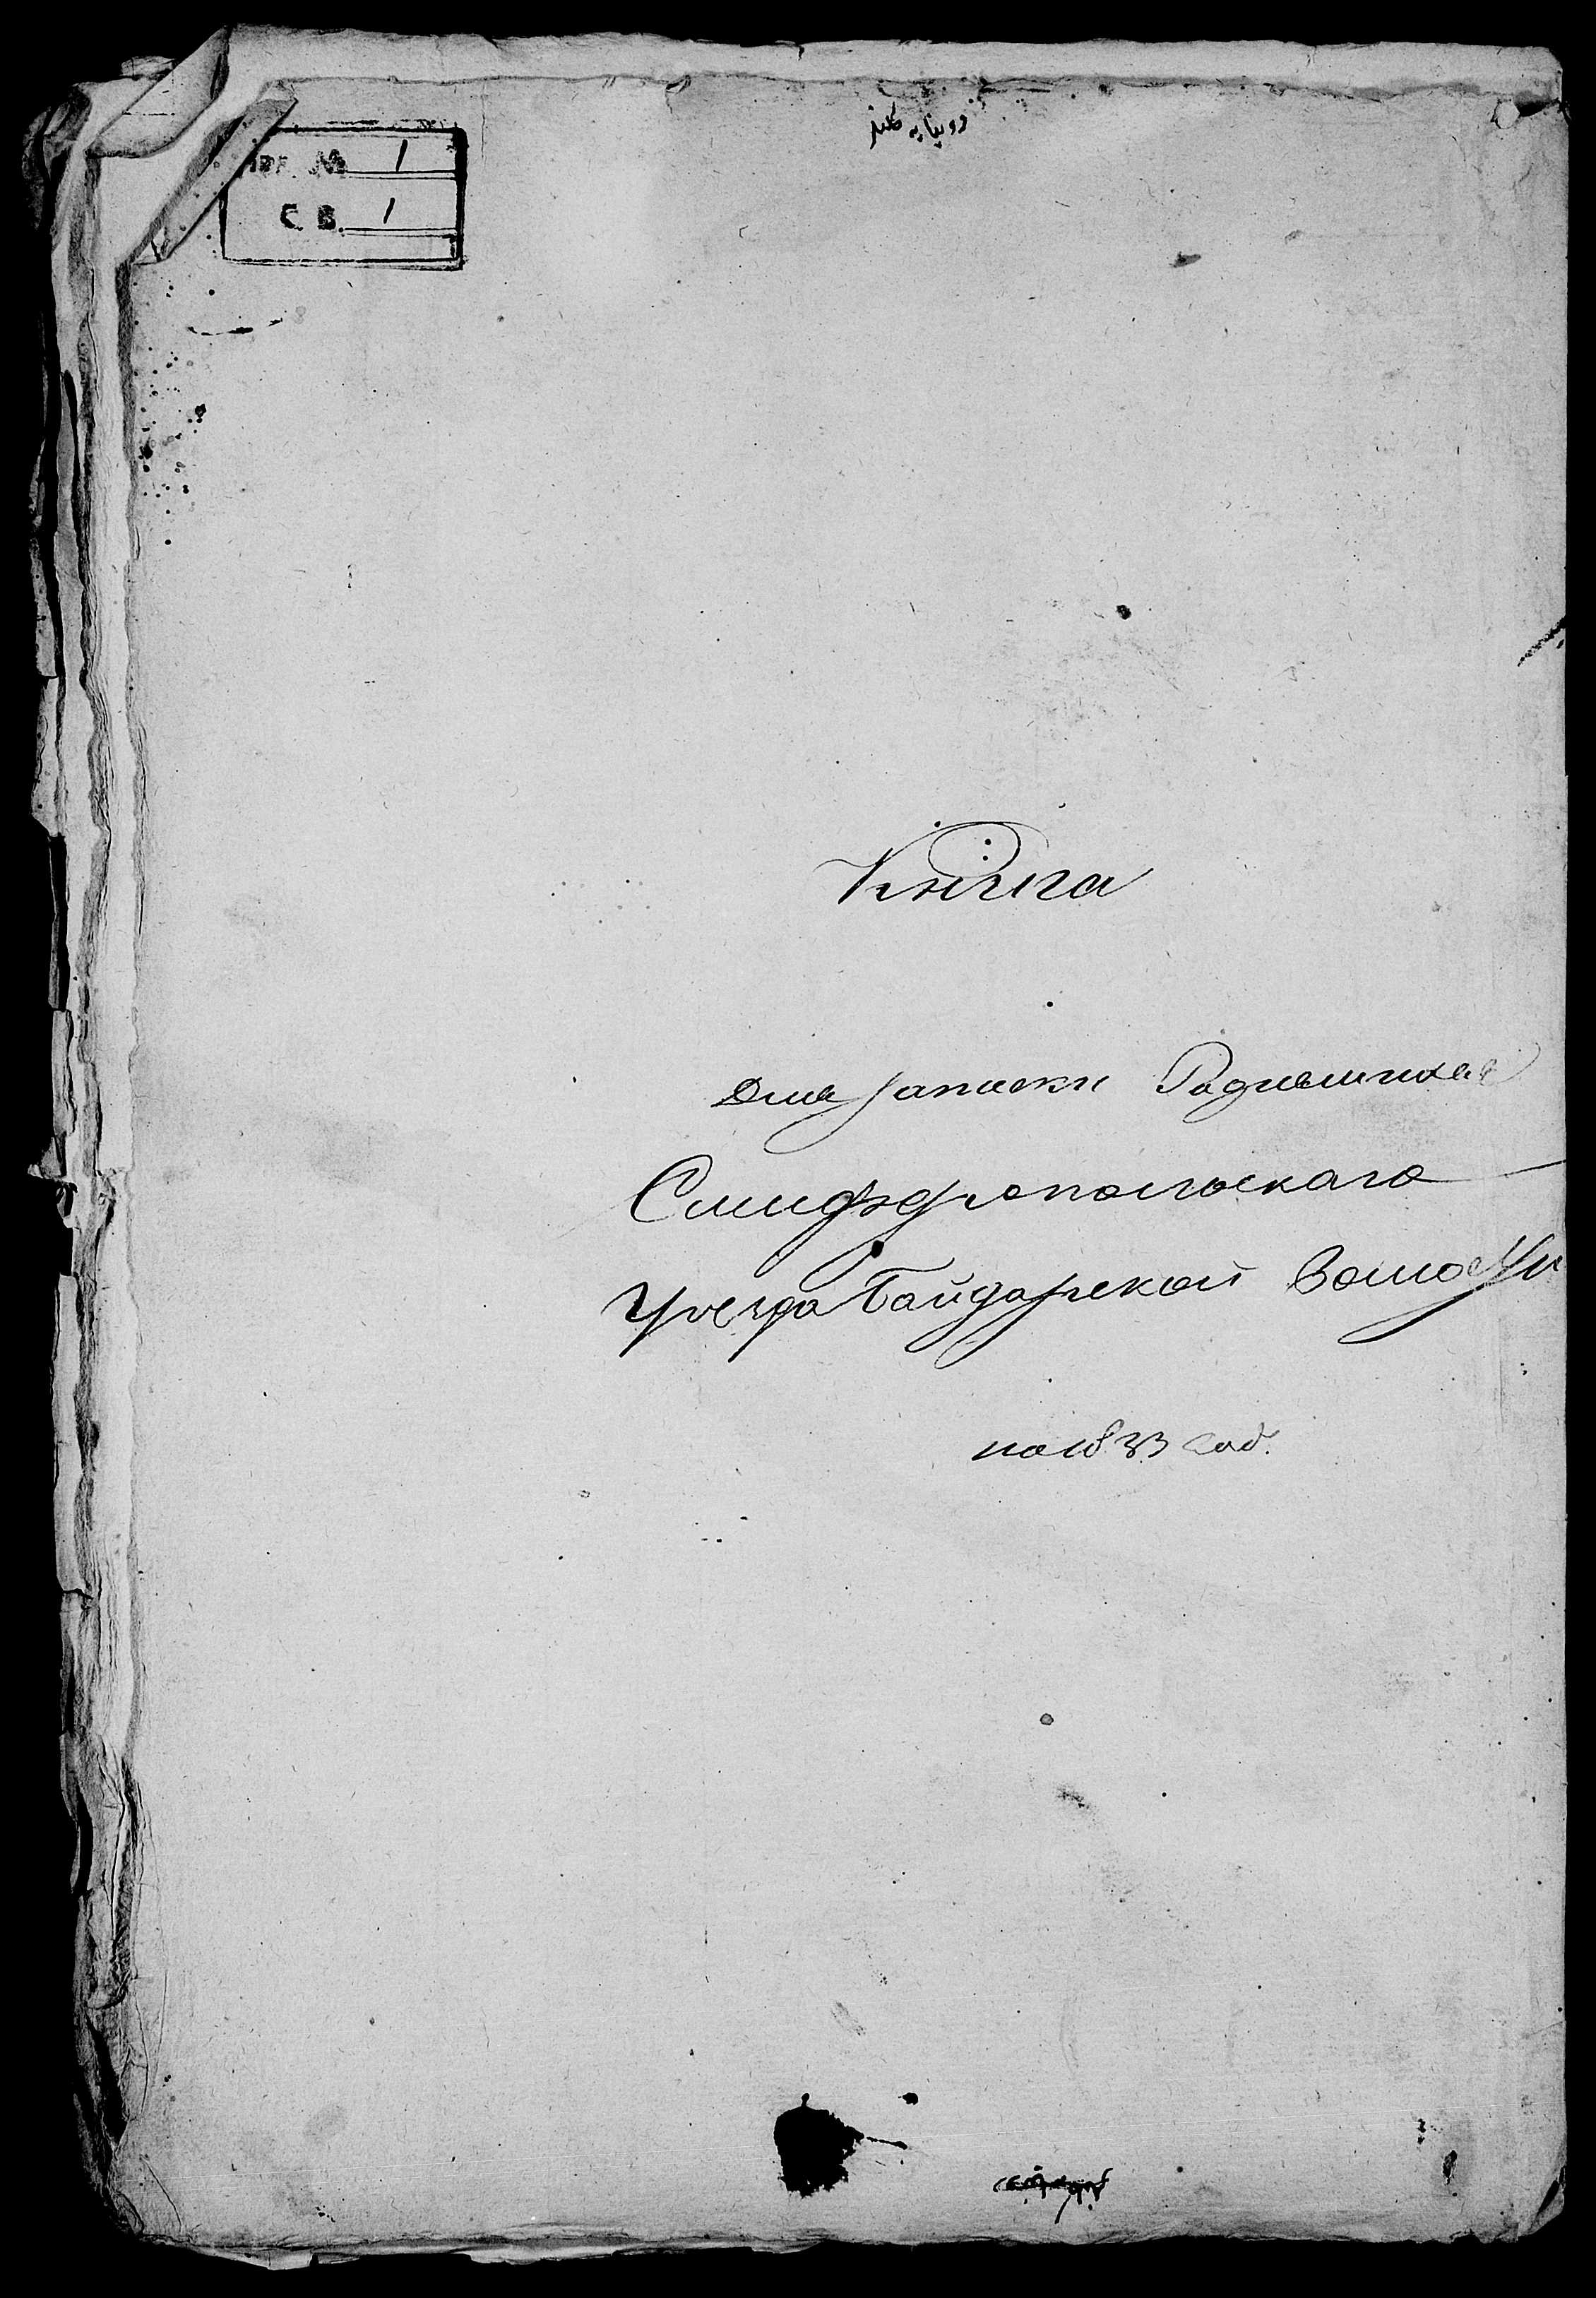 № 1
С. В. 1
Книга
Для записки Родившихся
Симферопольскаго
Уезда Байдарской Волости
на 1833 год.